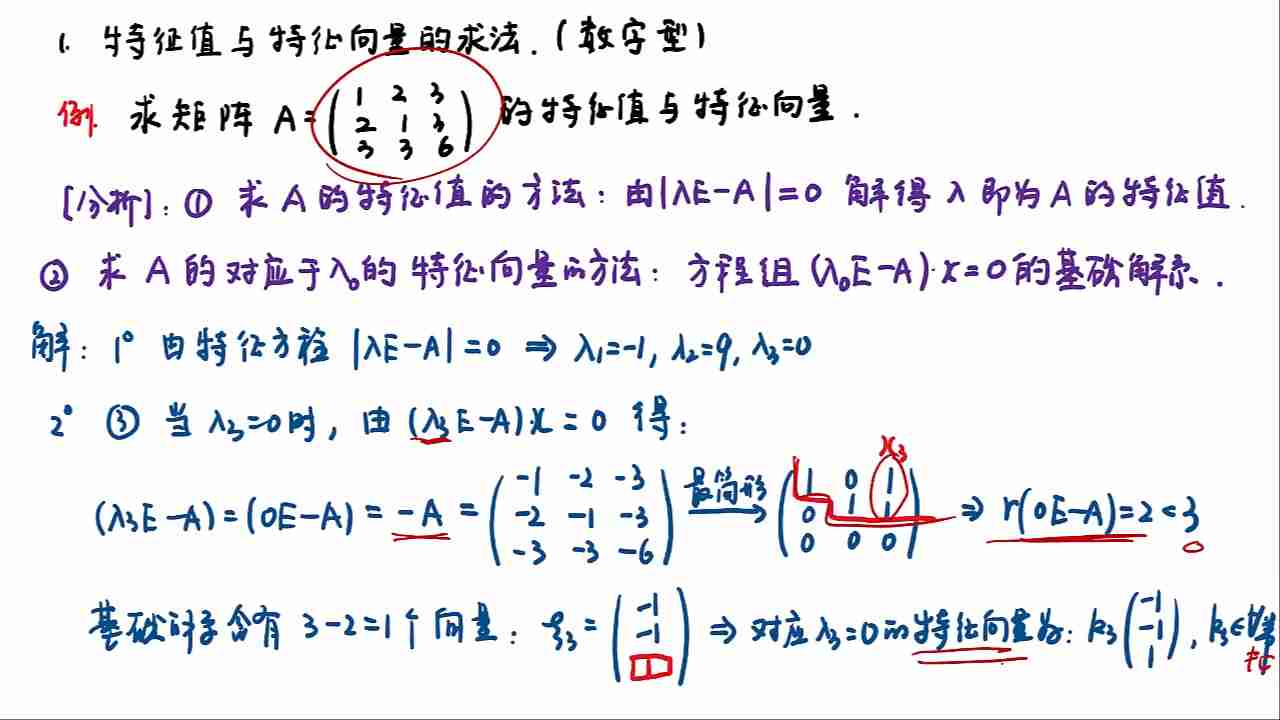 1. 特征值与特征向量的求法.(数字型)
例. 求矩阵 A=(1 2 3; 2 1 3; 3 3 6) 的特征值与特征向量.
[分析]: ① 求 A 的特征值的方法: 由|λE-A|=0 解得 λ 即为 A 的特征值.
② 求 A 的对应于λ₀的特征向量的方法: 方程组 (λ₀E-A)·x=0 的基础解系.
解: 1° 由特征方程 |λE-A|=0 ⇒ λ₁=-1, λ₂=9, λ₃=0
2° ③ 当 λ₃=0时, 由 (λ₃E-A)x=0 得:
x₃
(λ₃E-A)=(0E-A)=-A=(-1 -2 -3; -2 -1 -3; -3 -3 -6) 最简形→ (1 0 1; 0 1 1; 0 0 0) ⇒ r(0E-A)=2<3
基础解系含有 3-2=1个向量: ξ₃=(-1; -1; ) ⇒ 对应λ₃=0的特征向量为: k₃(-1; -1; 1), k₃∈